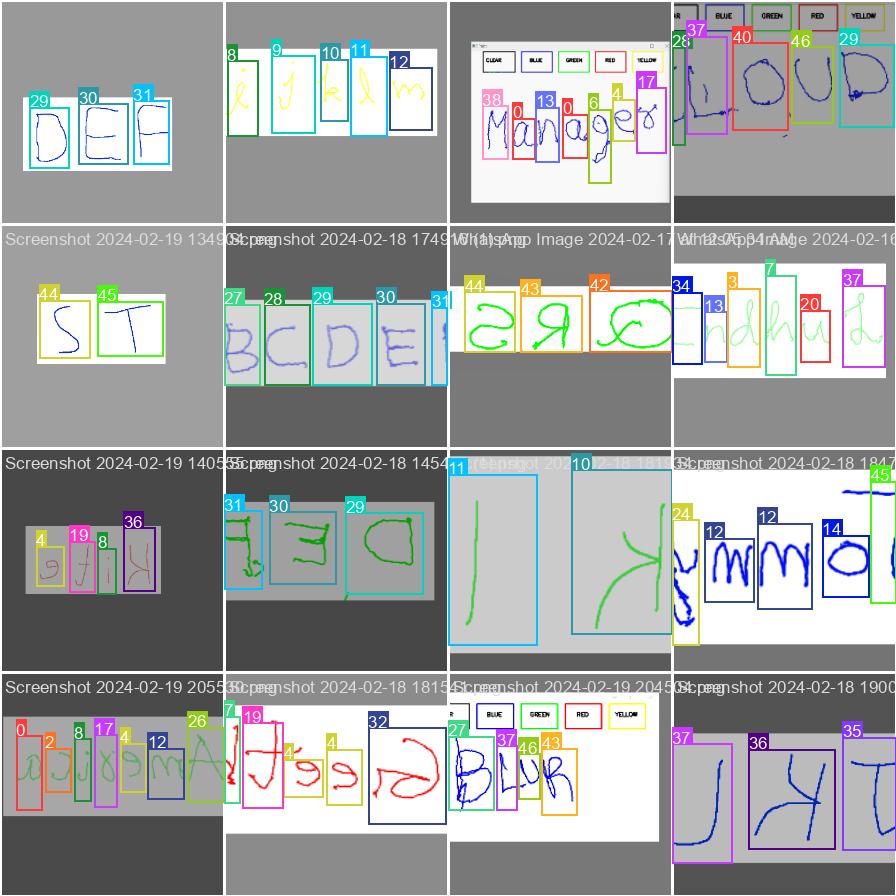 29 30 31
D E F
8 9 10 11 12
i j k l m
CLEAR BLUE GREEN RED YELLOW
38 0 13 0 6 4 17
Manager
BLUE GREEN RED YELLOW
28 37 40 46 29
LOUD
Screenshot 2024-02-19 134904.png
44 45
S T
Screenshot 2024-02-18 1749
27 28 29 30 31
B C D E
WhatsApp Image 2024-02-17 at 12.05.34 AM
44 43 42
S R Q
WhatsApp Image 2024-02-16
34 13 3 7 20 37
ndhu L
Screenshot 2024-02-19 140555.png
4 19 8 36
e t i K
Screenshot 2024-02-18 1454
31 30 29
F E D
11 10
l k
Screenshot 2024-02-18 1847
24 12 12 14 45
y m m o
Screenshot 2024-02-19 205530.png
0 2 8 17 4 12 26
a c i r e m A
Screenshot 2024-02-18 181541.png
7 19 4 4 32
t e e G
Screenshot 2024-02-19 204504.png
BLUE GREEN RED YELLOW
27 37 46 43
BLUR
Screenshot 2024-02-18 1900
37 36 35
L K J